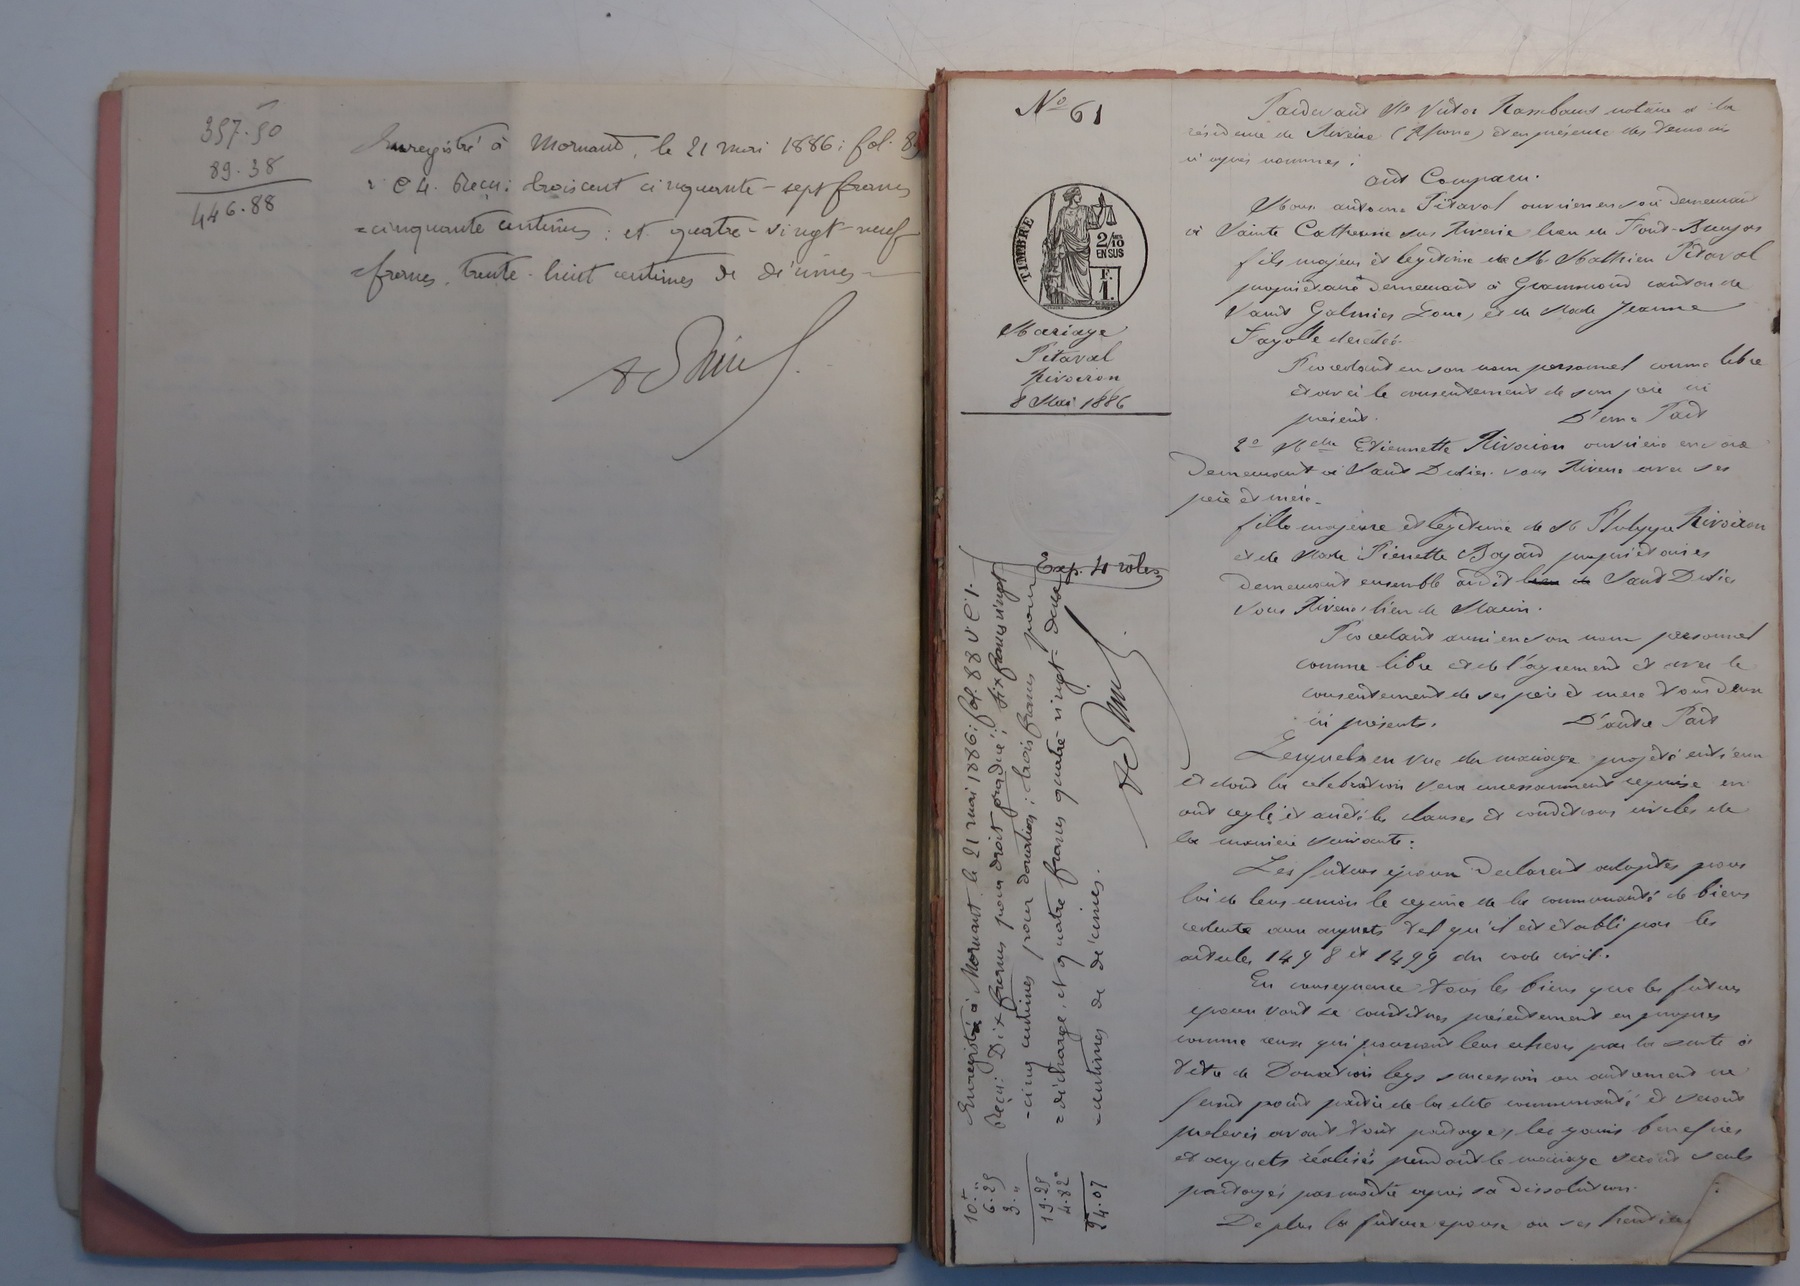 357.50
89.38
446.88
Enregistré à Mornant, le 21 mai 1886; fol. 89
r° C 4. Reçu: trois cent cinquante-sept francs
=cinquante centimes; et quatre-vingt-neuf
=francs, trente-huit centimes de décimes=
N° 61
TIMBRE
2/10 EN SUS
F. 1.
Mariage
Pitaval
Rivoiron
8 Mai 1886
Exp. 4 rôles
Enregistré à Mornant le 21 mai 1886; fol. 88 v° C 1.
Reçu: Dix francs pour droit gradué; six francs vingt
-cinq centimes pour donation; trois francs pour
=décharge, et quatre francs quatre-vingt-deux
=centimes de décimes.
10 "
6.25
3 "
19.25
4.82
24.07
Pardevant Me Victor notaire à la
résidence de Riverie (Rhône) et en présence des témoins
ci après nommés:
ont Comparu.
Antoine Pitaval ouvrier en soie demeurant
à Sainte Catherine sus Riverie, lieu de
fils majeur et légitime de Mr Mathieu Pitaval
propriétaire demeurant à Grammond canton de
Saint Galmier Loire, et de Made Jeanne
Fayolle décédée.
Procédant en son nom personnel comme libre
et avec le consentement de son père ici
présent. D'une Part
2° Melle Etiennette Rivoiron ouvrière en soie
demeurant à Saint Didier sous Riverie avec ses
père et mère.
fille majeure et légitime de Mr Rivoiron
et de Made Pierrette propriétaires
demeurant ensemble audit lieu de Saint Didier
sous Riverie lieu de
Procédant aussi en son nom personnel
comme libre et de l'agrément et avec le
consentement de ses père et mère tous deux
ici présents. D'autre Part
Lesquels en vue du mariage projeté entr'eux
et dont la célébration sera incessamment requise en
ont réglé et arrêté les clauses et conditions civiles de
la manière suivante:
Les futurs époux déclarent adopter pour
loi de leur union le régime de la communauté de biens
réduite aux acquets tel qu'il est établi par les
articles 1498 et 1499 du code civil.
En conséquence tous les biens que les futurs
époux vont se constituer présentement en propres
comme ceux qui pourront leur échoir par la suite à
titre de Donation legs succession ou autrement ne
feront point partie de la dite communauté et seront
prélevés avant tout partage, les gains bénéfices
et acquets réalisés pendant le mariage seront seuls
partagés par moitié après sa dissolution.
De plus la future épouse ou ses héritiers